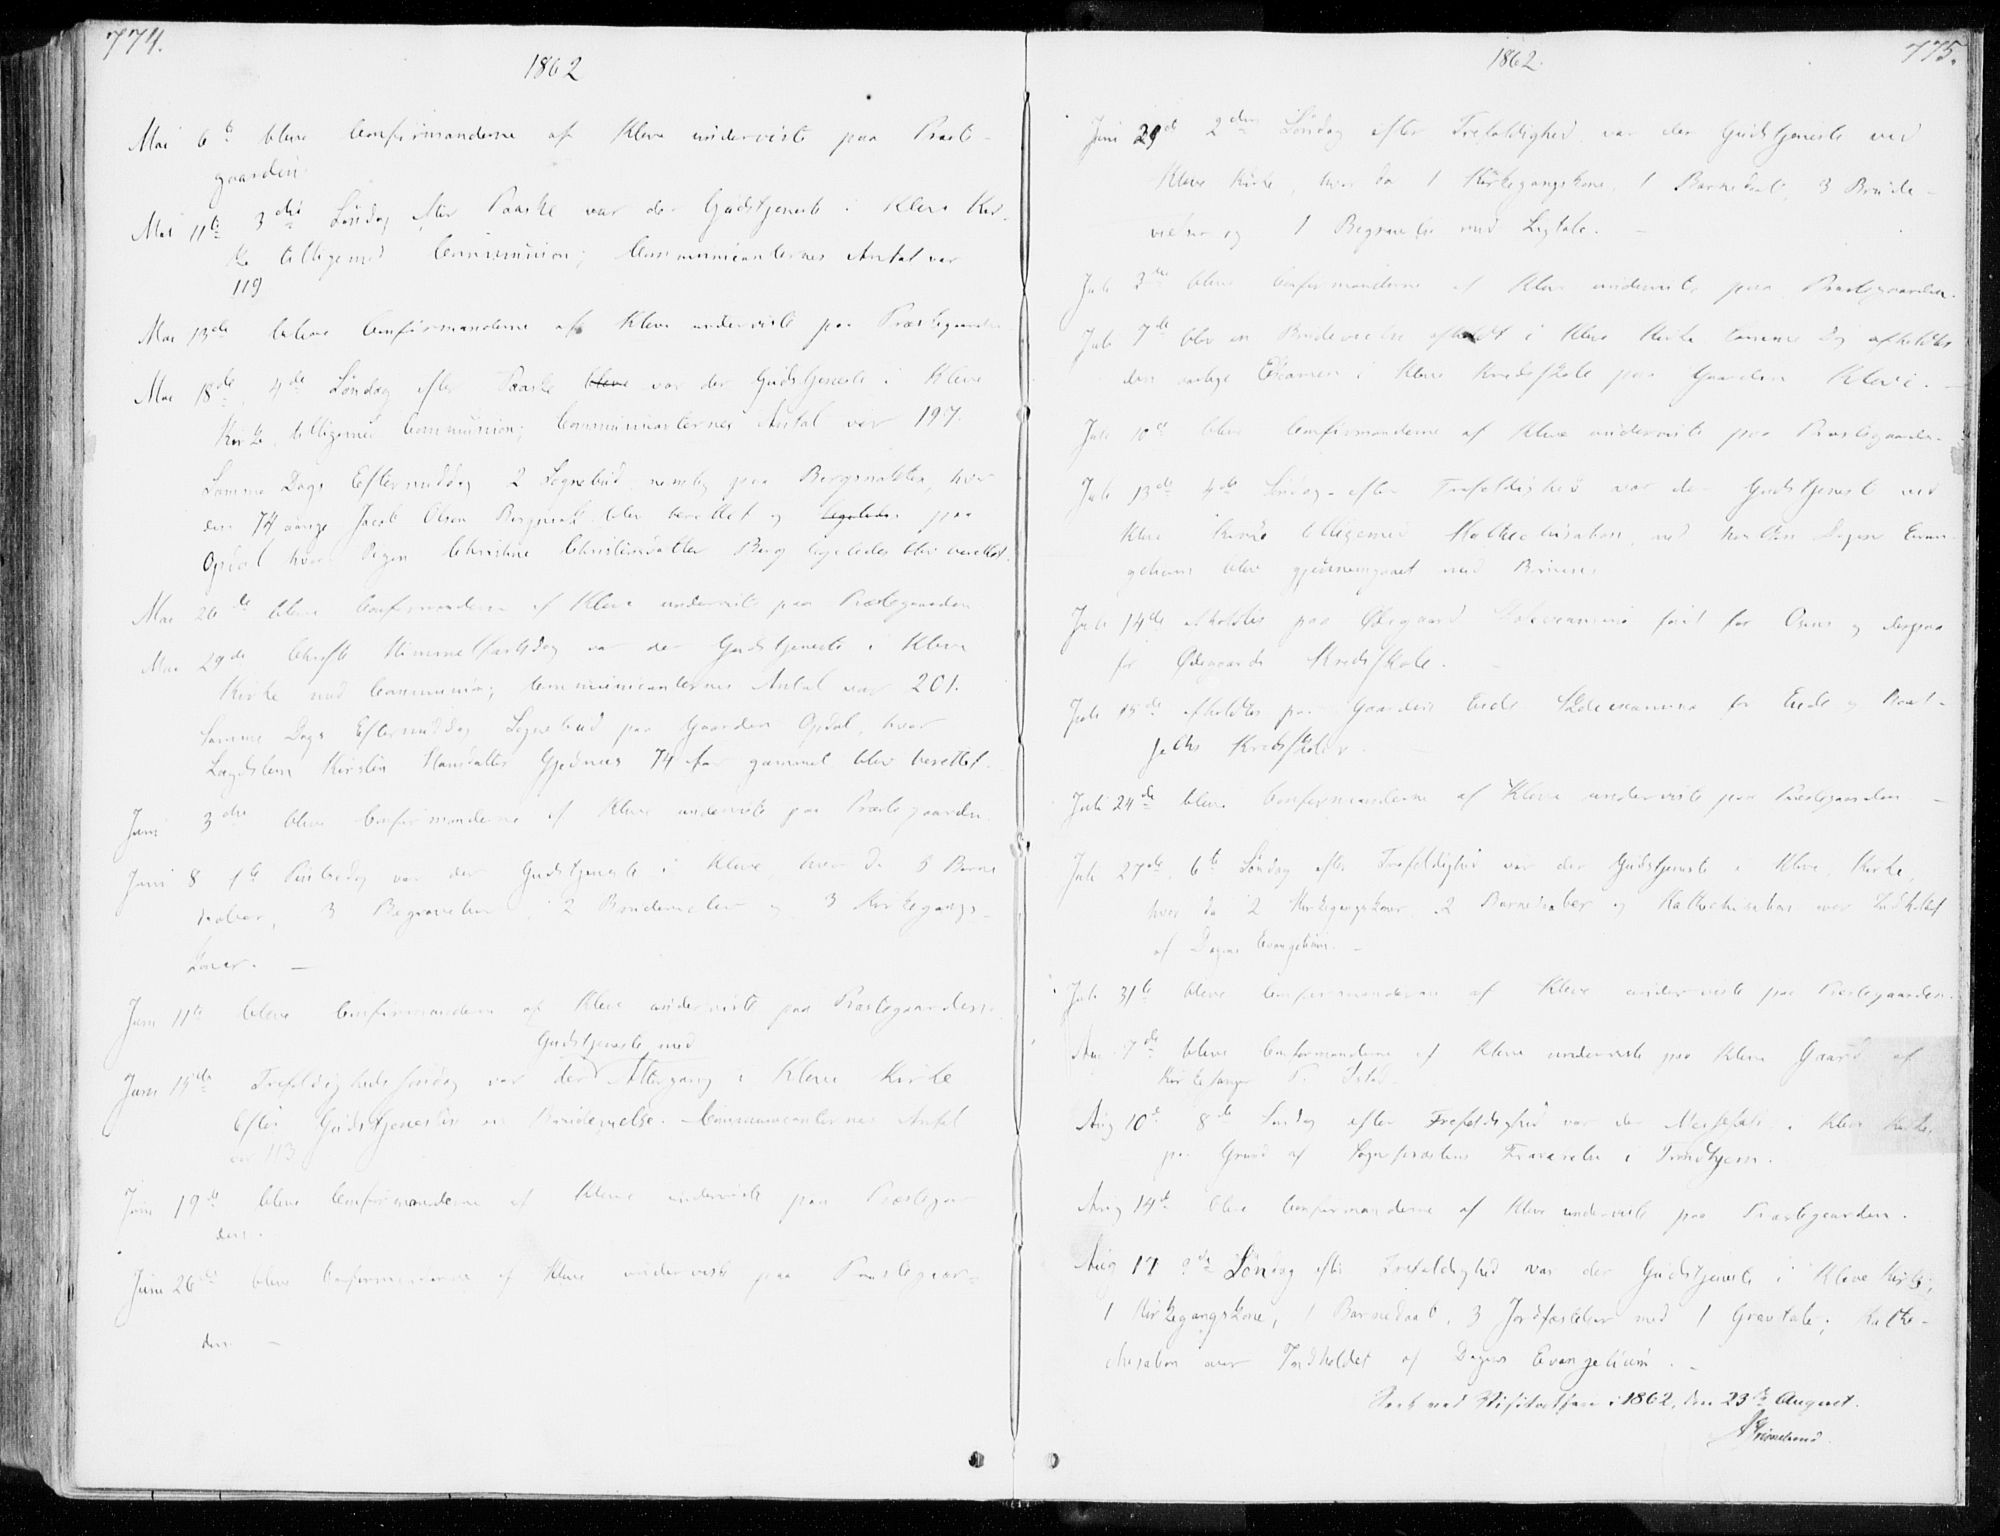 774.
1862
Mai 6te bleve Confirmanderne af Kleve underviste paa Præste-
gaarden.
Mai 11te 3die Søndag efter Paaske var der Gudstjeneste i Kleve Kir-
ke tilligemed Communion; Communicanternes Antal var
119
Mai 13de bleve Confirmanderne af Kleve underviste paa Præstegaarden
Mai 18de, 4de Søndag efter Paaske var der Gudstjeneste i Kleve
Kirke tilligemed Communion; Communicanternes Antal var 197.
Samme Dags Eftermiddag 2 Sognebud nemlig paa hvor
den 74 aarige Jacob Olsen blev berettet og paa
Opdal hvor Pigen Christine Christensdatter Berg ligeledes blev berettet.
Mai 26de bleve Confirmanderne af Kleve underviste paa Præstegaarden
Mai 29de Christi Himmelfartsdag var der Gudstjeneste i Kleve
Kirke med Communion; Communicanternes Antal var 201.
Samme Dags Eftermiddag Sognebud paa Gaarden Opdal, hvor
Kirsten Hansdatter 74 Aar gammel blev berettet.
Juni 3die bleve Confirmanderne af Kleve underviste paa Præstegaarden.
Juni 8 1ste Pintsedag var der Gudstjeneste i Kleve, hvor da 5 Barne
daaber, 3 Begravelser, 2 Brudevielser og 3 Kirkegangs-
koner. —
Juni 11te bleve Confirmanderne af Kleve underviste paa Præstegaarden.
Gudstjeneste med
Juni 15de Trefoldighedssøndag var der Altergang i Kleve Kirke
Efter Gudstjenesten en Brudevielse. Communicanternes Antal
var 113
Juni 19de bleve Confirmanderne af Kleve underviste paa Præstegaar
den.
Juni 26de bleve Confirmanderne af Kleve underviste paa Præstegaar-
den. —
1862.
775.
Juni 29de 2den Søndag efter Trefoldighed var der Gudstjeneste ved
Kleve Kirke, hvor da 1 Kirkegangskone, 1 Barnedaab, 3 Brude-
vielser og 1 Begravelse med Ligtale. —
Juli 3die bleve Confirmanderne af Kleve underviste paa Præstegaarden.
Juli 7de blev en Brudevielse afholdt i Kleve Kirke samme Dag afholdtes
den aarlige Examen i Kleve Kredsskole paa Gaarden Kleve. —
Juli 10de bleve Confirmanderne af Kleve underviste paa Præstegaarden.
Juli 13de 4de Søndag efter Trefoldighed var der Gudstjeneste ved
Kleve Kirke tilligemed Kathechisation, ved hvilken Dagens Evan-
gelium blev gjennemgaaet med Børnene.
Juli 14de afholdtes paa Ødegaard Skoleexamina først for Osens og derpaa
for Ødegaards Kredsskole. —
Juli 15de afholdtes paa Gaarden Eide Skoleexamina for Eide og
Kredsskoler. —
Juli 24de bleve Confirmanderne af Kleve underviste paa Præstegaarden —
Juli 27de, 6te Søndag efter Trefoldighed var der Gudstjeneste i Kleve Kirke,
hvor da 2 Kirkegangskoner, 2 Barnedaaber og Kathechisation over Indholdet
af Dagens Evangelium. —
Juli 31te bleve Confirmanderne af Kleve underviste paa Præstegaarden.
Aug 7de bleve Confirmanderne af Kleve underviste paa Kleve Gaard af
Kirkesanger
Aug 10de 8de Søndag efter Trefoldighed var der Messefald i Kleve Kirke
paa Grund af Sognepræstens Fraværelse i Trondhjem.
Aug 14de bleve Confirmanderne af Kleve underviste paa Præstegaarden.
Aug 17 9de Søndag efter Trefoldighed var der Gudstjeneste i Kleve Kirke;
1 Kirkegangskone, 1 Barnedaab, 3 Jordfæstelser med 1 Gravtale; Kathe-
chisation over Indholdet af Dagens Evangelium. —
Seet ved Visitatsen i 1862, den 23de August.